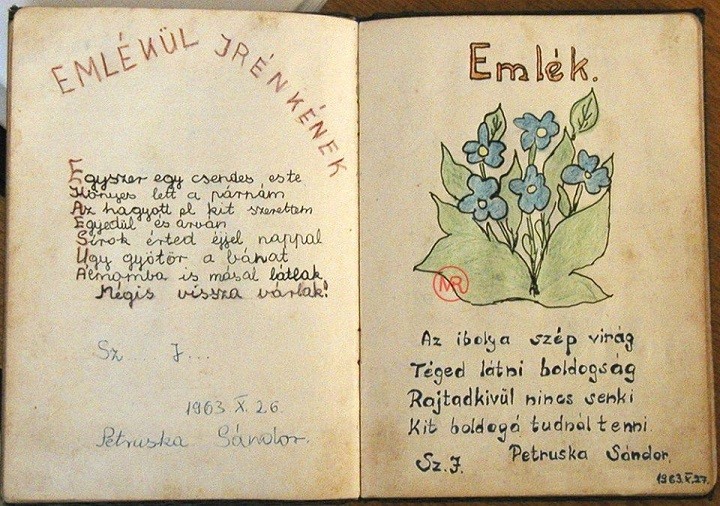 EMLÉKÜL IRÉNKÉNEK
Egyszer egy csendes este
Könyes lett a párnám
Az hagyott el kit szerettem
Egyedül és árván
Sirok érted éjjel nappal
Ugy gyötör a bánat
Álmomba is mással látlak
Mégis vissza várlak!
Sz.... J...
1963. X. 26.
Petruska Sándor.
Emlék.
MR
Az ibolya szép virág
Téged látni boldogság
Rajtadkivül nincs senki
Kit boldogá tudnál tenni.
Sz. J. Petruska Sándor.
1963. X. 27.